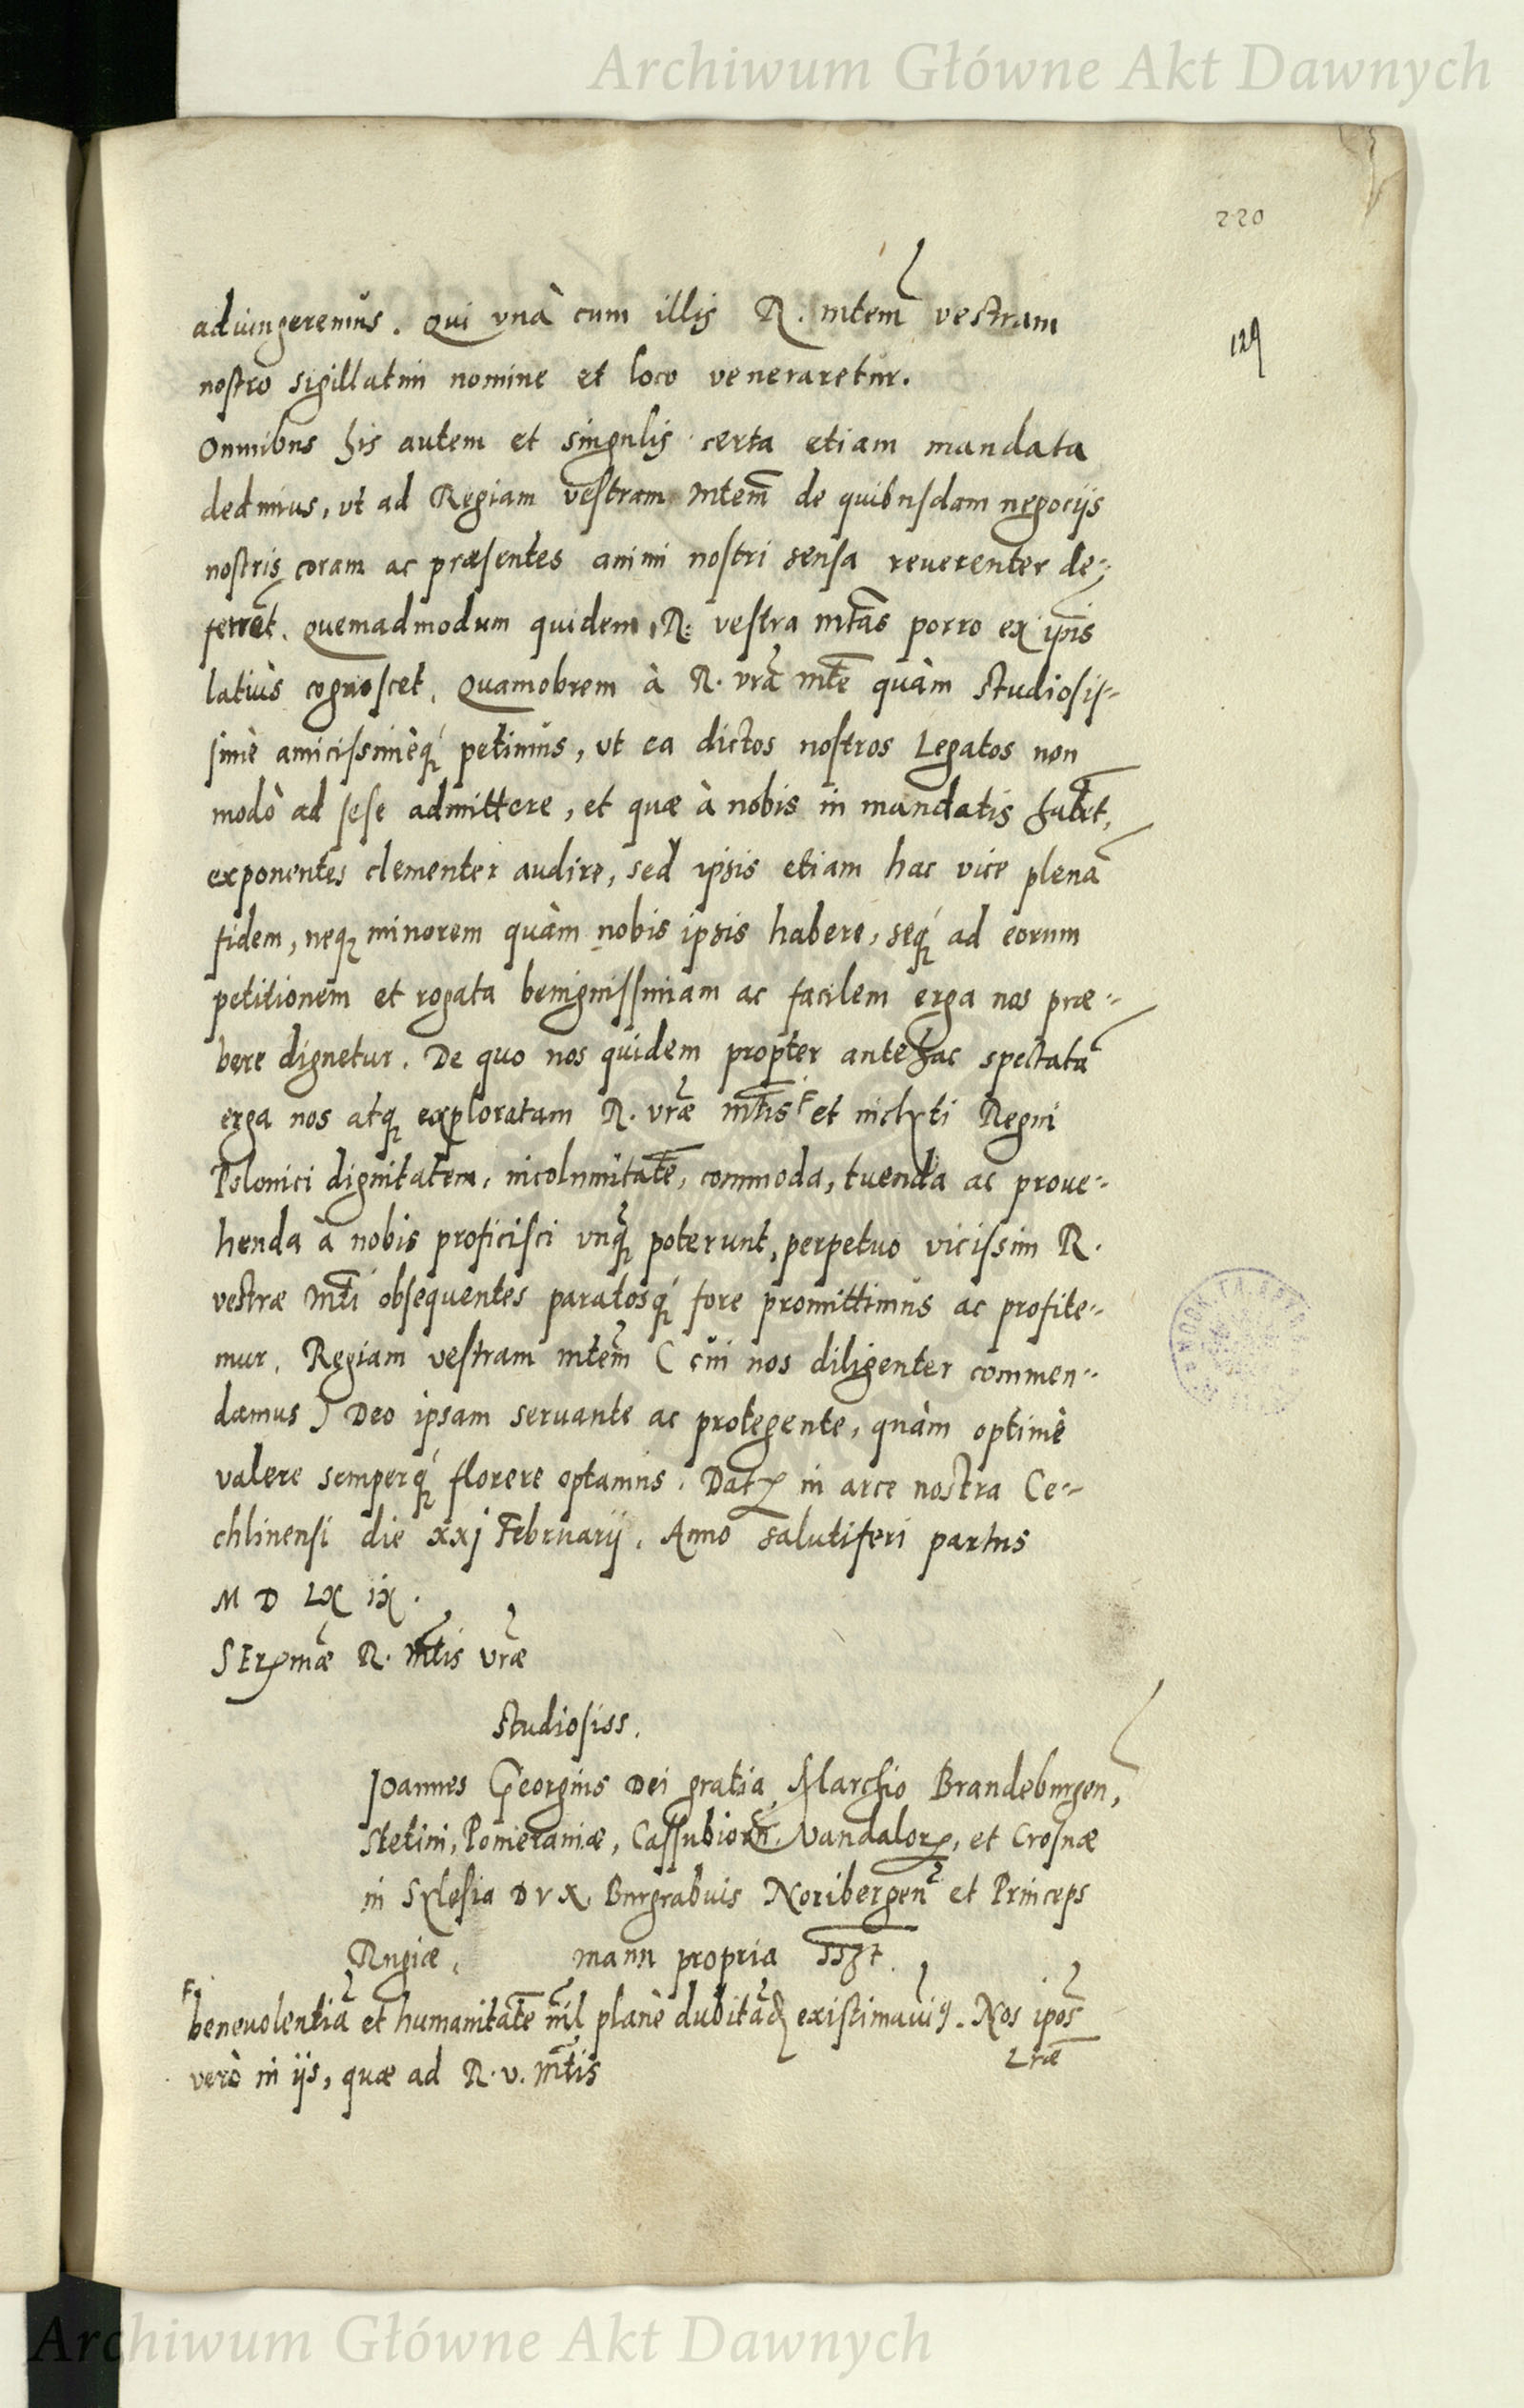 Archiwum Główne Akt Dawnych
220
129
adiungeremus. Qui vnà cum illis R. mtem vestram
nostro sigillatim nomine et loco veneraretur.
Omnibus his autem et singulis certa etiam mandata
dedimus, vt ad Regiam vestram Mtem de quibusdam negocijs
nostris coram ac præsentes animi nostri sensa reuerenter de-
ferret. Quemadmodum quidem R. vestra mtas porro ex ipis
latius cognoscet. Quamobrem à R. vra mte quàm studiosis-
simè amicissimèq; petimus, vt ea dictos nostros Legatos non
modò ad sese admittere, et quæ à nobis in mandatis habet,
exponentes clementer audire, sed ipsis etiam hac vice plenā
fidem, neq; minorem quàm nobis ipsis habere, seq; ad eorum
petitionem et rogata benignissimam ac facilem erga nos præ-
bere dignetur. De quo nos quidem propter antehac spectatā
erga nos atq; exploratam R. vræ mtis F et inclyti Regni
Polonici dignitatem, incolumitatē, commoda, tuenda ac proue-
henda à nobis proficisci vnq̄ poterunt, perpetuo vicissim R.
vestræ Mti obsequentes paratosq; fore promittimus ac profite-
mur. Regiam vestram mtem ( cui nos diligenter commen-
damus ) Deo ipsam seruante ac protegente, quàm optimè
valere semperq; florere optamus. Datꝝ in arce nostra Ce-
chlinensi die xxj Februarij. Anno salutiferi partus
M D LX ix.
SErꝝmæ R. Mtis vræ
Studiosiss.
Joannes Georgius Dei gratia Marchio Brandeburgen,
Stetini, Pomeraniæ, Cassubiorū, Vandalorꝝ, et Crosnæ
in Sylesia DVX. Burgrabuis Noribergen et Princeps
Rugiæ. manu propria sszt.
F benevolentiā et humanitatē nil planè dubitādꝫ existimauiꝰ. Nos ipos
verò in ijs, quæ ad R. v. Mtis
Lræ
Archiwum Główne Akt Dawnych